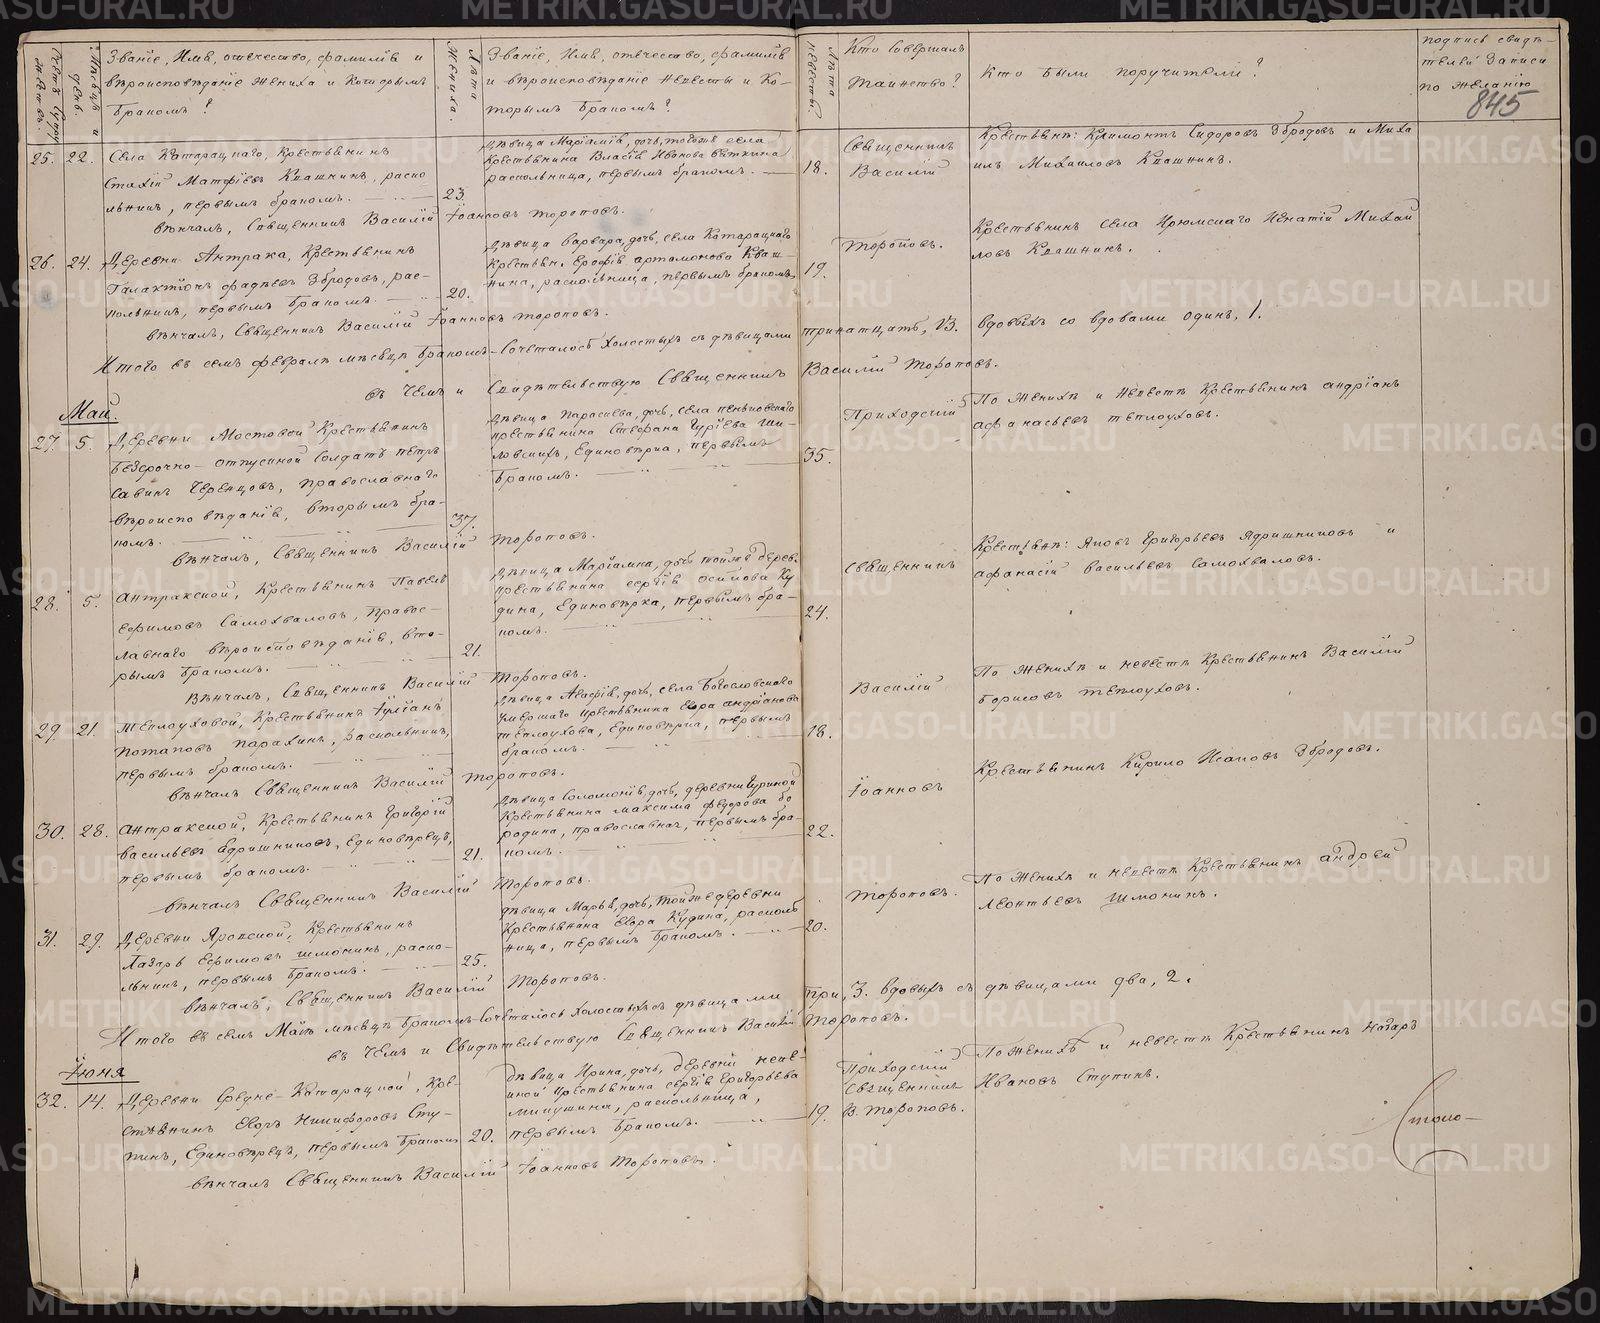 Счетъ браковъ.
Мѣсяцъ и день.
Званіе, Имя, отчество, фамилія и
вѣроисповѣданіе жениха и которымъ
Бракомъ?
Лѣта Жениха.
Званіе, Имя, отчество, фамилія
и вѣроисповѣданіе Невѣсты и Ко-
торымъ Бракомъ?
Лѣта невѣсты.
Кто Совершалъ
Таинство?
Кто были поручители?
подпись свидѣ-
телей записи
по желанію
845
25. 22. Села Катарацкаго, Крестьянинъ
Стахій Матфіевъ Квашнинъ, раско-
льникъ, первымъ бракомъ. 23.
Дѣвица Маріамія, дочь, тогожъ села
Крестьянина Власія Иванова Вяткина
раскольница, первымъ бракомъ. 18.
Священникъ
Василій
Крестьяне: Климонтъ Сидоровъ Збродовъ и Миха
илъ Михаиловъ Квашнинъ.
вѣнчалъ, Священникъ Василій Іоанновъ Тороповъ.
26. 24. Деревни Антрака, Крестьянинъ
Галактіонъ фадѣевъ Збродовъ, рас-
кольникъ, первымъ бракомъ. 20.
Дѣвица Варвара, дочь, села Катарацкаго
Крестьян. Ерофія артамонова Кваш-
нина, раскольница, первымъ бракомъ. 19.
Тороповъ.
Крестьянинъ села Ирюмскаго Игнатій Михай
ловъ Квашнинъ.
вѣнчалъ, Священникъ Василій Іоанновъ Тороповъ.
Итого въ семъ февралѣ мѣсяцѣ Бракомъ-Сочеталось Холостыхъ съ дѣвицами тринатцать, 13. вдовыхъ со вдовами одинъ, 1.
въ Чемъ и Свидѣтельствую Священникъ Василій Тороповъ.
Май.
27. 5. Деревни Мостовой Крестьянинъ
безсрочно-отпускной Солдатъ Петръ
Савинъ Черепцовъ, православнаго
вѣроисповѣданія, вторымъ бра-
комъ. 37.
Дѣвица Параскева, дочь, села пеньковскаго
крестьянина Стефана Гурiева Ши-
ловскихъ, Единовѣрка, первымъ
Бракомъ. 35.
Приходскій
По Женихѣ и Невѣстѣ Крестьянинъ андріанъ
афанасьевъ теплоуховъ.
вѣнчалъ, Священникъ Василій Тороповъ.
28. 5. антракской, Крестьянинъ Павелъ
Ефимовъ Самохваловъ, Правос-
лавнаго вѣроисповѣданія, вто-
рымъ Бракомъ. 21.
Дѣвица Маріамна, дочь тойже дерев.
крестьянина сергія осипова Ку
дина, Единовѣрка, первымъ бра-
комъ. 24.
священникъ
Крестьяне: Яковъ Григорьевъ Ядришниковъ и
афанасій васильевъ Самохваловъ.
Вѣнчалъ, Священникъ Василій Тороповъ.
29. 21. Теплоуховой, Крестьянинъ Іуліанъ
Потаповъ Парахинъ, раскольникъ,
первымъ бракомъ.
Дѣвица Агафія, дочь, села Богословскаго
умершаго крестьянина Егора андріанова
теплоухова, Единовѣрка, первымъ
бракомъ. 18.
Василій
По Женихѣ и невѣстѣ Крестьянинъ Василій
борисовъ теплоуховъ.
вѣнчалъ Священникъ Василій Тороповъ.
30. 28. антракской, Крестьянинъ Григорій
васильевъ Ядришниковъ, единовѣрецъ,
первымъ бракомъ. 21.
Дѣвица Соломонія, дочь, деревни Гуриной
Крестьянина максима федорова бо
родина, православная, первымъ бра-
комъ. 22.
Іоанновъ
Крестьянинъ Кирило Исаковъ Збродовъ.
вѣнчалъ Священникъ Василій Тороповъ.
31. 29. Деревни Яровской, Крестьянинъ
Лазарь Ефимовъ шмонинъ, раско-
льникъ, первымъ бракомъ. 25.
Дѣвица Марья, дочь, тойже деревни
Крестьянина Егора Кудина, расколь
ница, первымъ бракомъ. 20.
Тороповъ.
По Женихѣ и невестѣ Крестьянинъ андрей
Леонтьевъ шмонинъ.
вѣнчалъ, Священникъ Василій Тороповъ.
Итого въ семъ Маѣ мѣсяцѣ Бракомъ-Сочеталось холостыхъ съ дѣвицами три, 3. вдовыхъ съ дѣвицами два, 2.
въ Чемъ и Свидѣтельствую Священникъ Василій Тороповъ.
Іюня
32. 14. Деревни Средне-Катарацкой, Кре-
стьянинъ Егоръ Никифоровъ Сту-
пинъ, Единовѣрецъ, первымъ бракомъ 20.
Дѣвица Ирина, дочь, деревни
крестьянина сергія Григорьева
Микушина, раскольница,
первымъ Бракомъ. 19.
Приходскій
Священникъ
В. Тороповъ.
По Женихѣ и невестѣ Крестьянинъ Назаръ
Ивановъ Ступинъ.
вѣнчалъ Священникъ Василій Іоанновъ Тороповъ.
METRIKI.GASO-URAL.RU